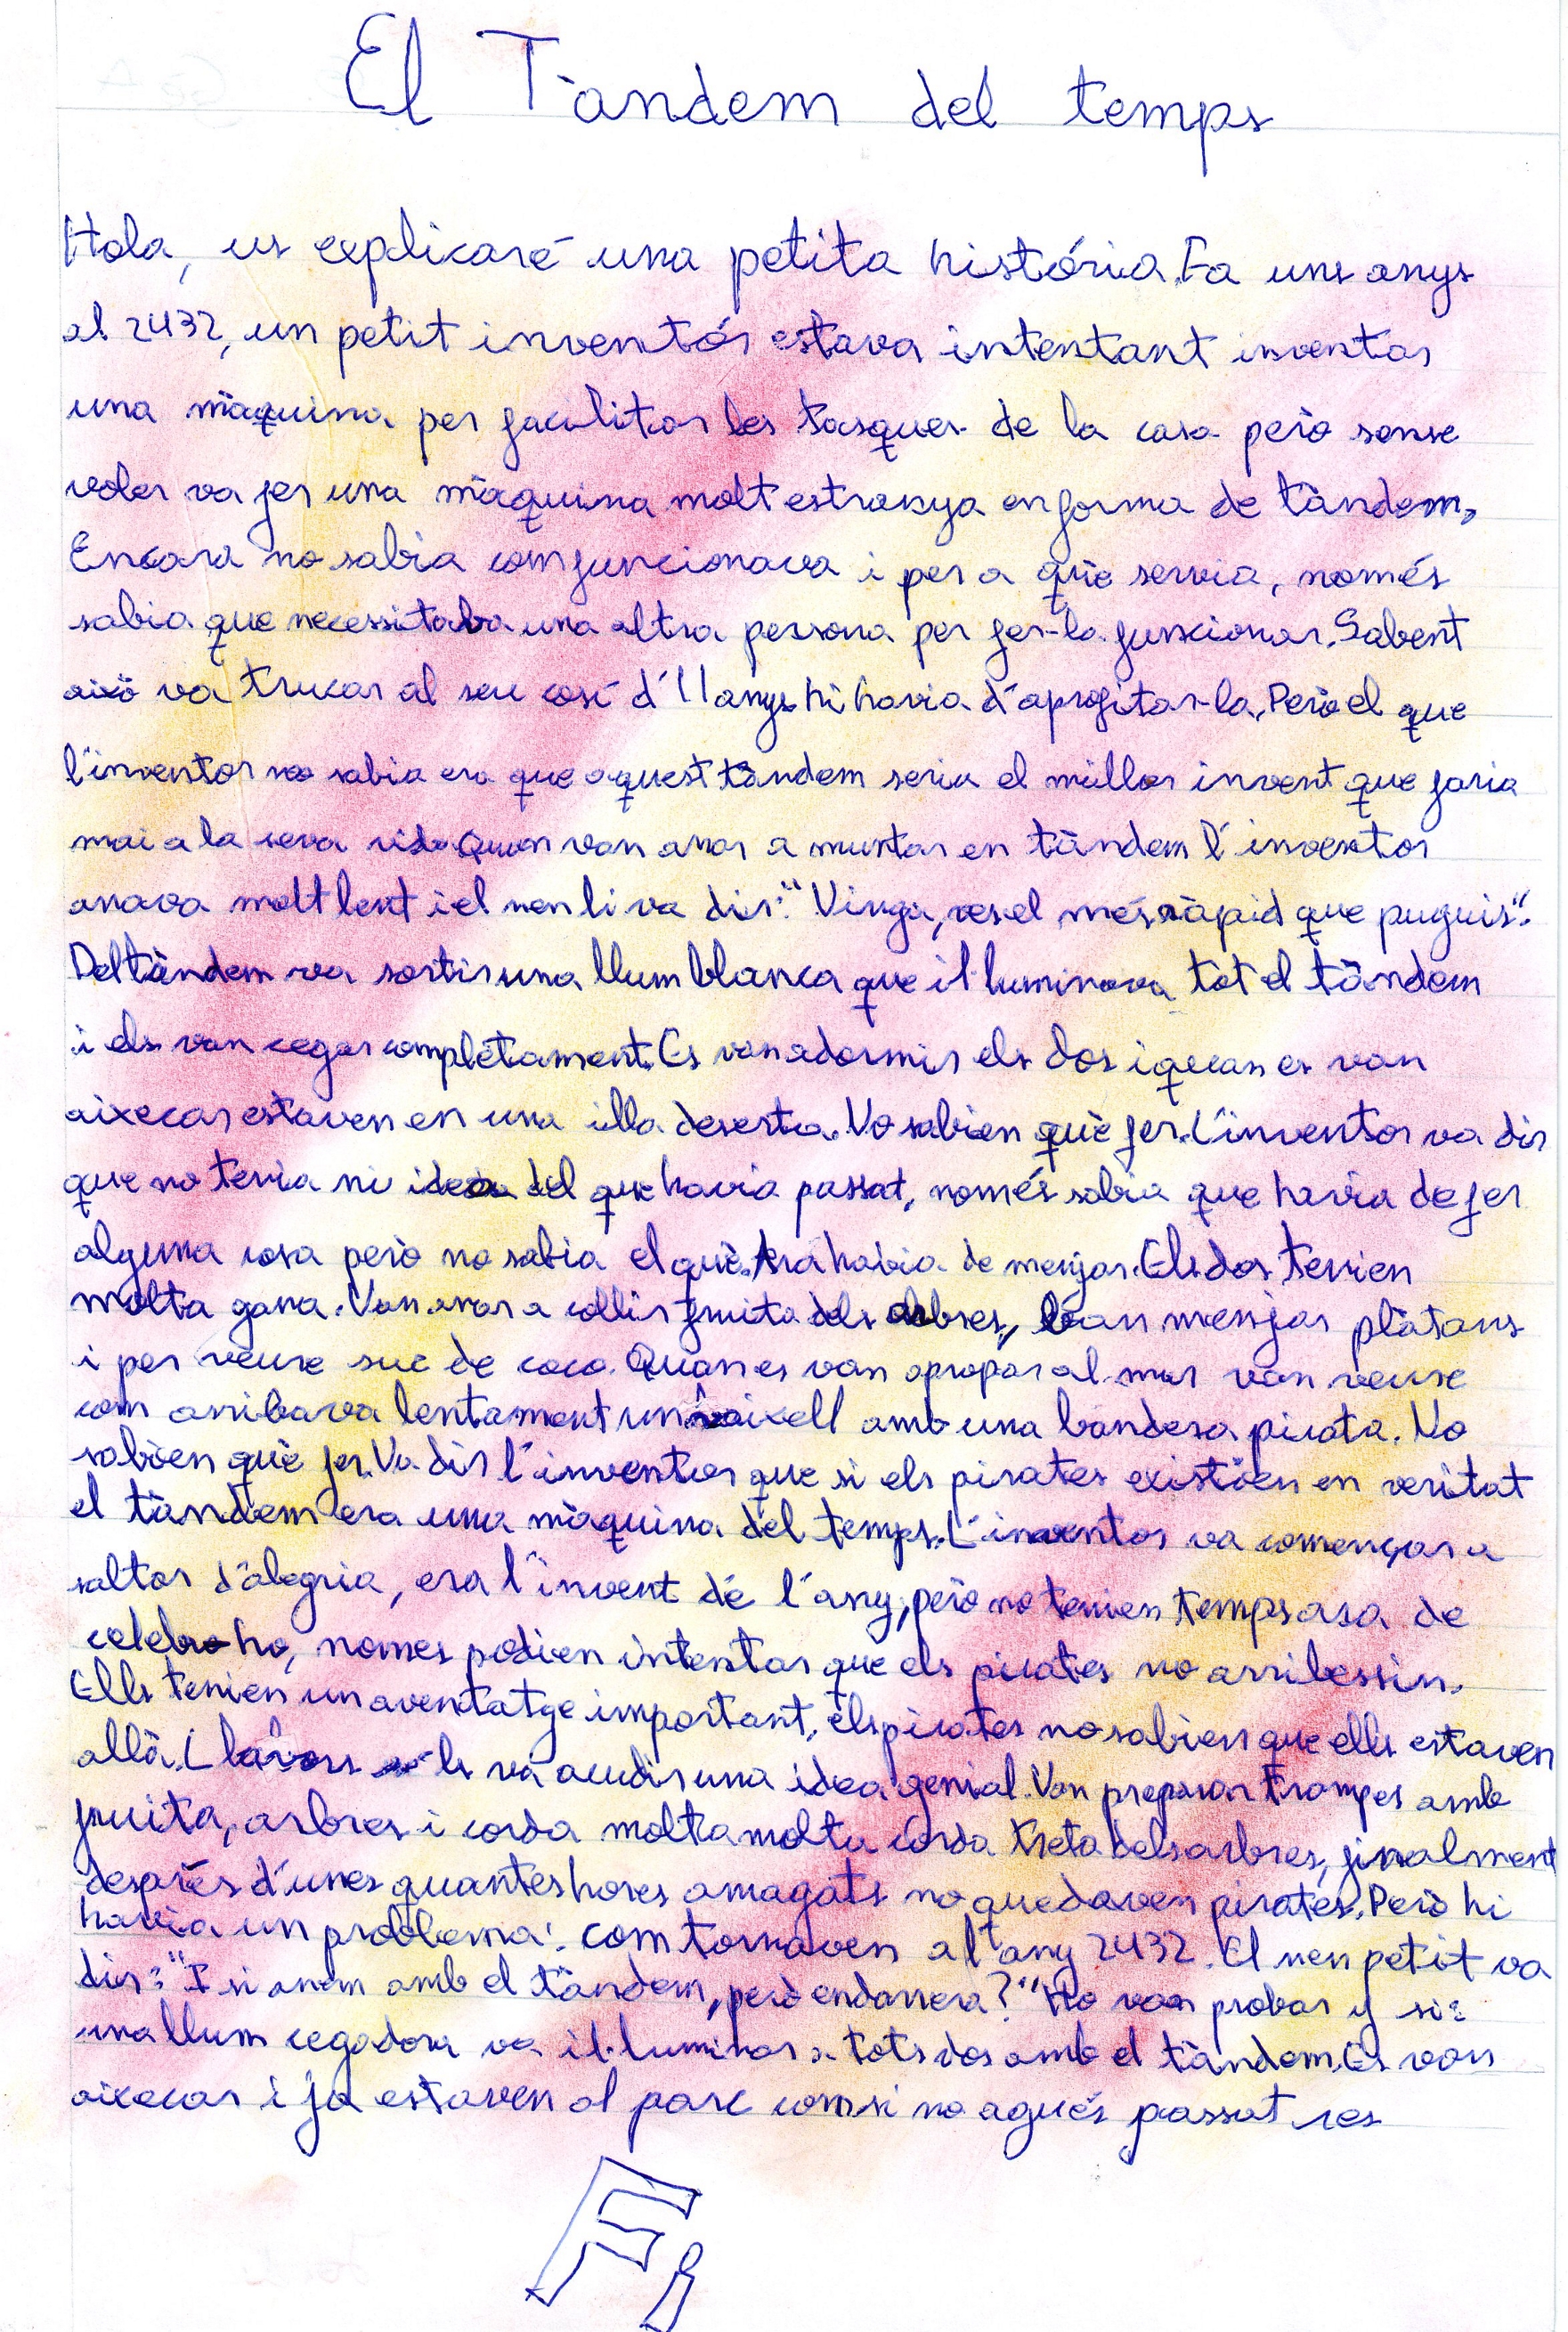 El Tàndem del temps
Hola, us explicaré una petita história. Fa uns anys
al 2432, un petit inventór estava intentant inventar
una màquina per facilitar les tasques de la casa però sense
voler va fer una màquina molt estranya en forma de tàndem.
Encara no sabia com funcionava i per a què servia, només
sabia que necessitaba una altra persona per fer-la funcionar. Sabent
això va trucar al seu cosí d'11 anys hi havia d'aprofitar-la. Però el que
l'inventor no sabia era que aquest tàndem seria el millor invent que faria
mai a la seva vida. Quan van anar a muntar en tàndem l'inventor
anava molt lent i el nen li va dir: "Vinga, ves el més ràpid que puguis".
Del tàndem va sortir una llum blanca que il·luminava tot el tàndem
i els van cegar completament. Es van adormir els dos i quan es van
aixecar estaven en una illa deserta. No sabien què fer. L'inventor va dir
que no tenia ni idea del que havia passat, només sabia que havia de fer
alguna cosa però no sabia el què. Ara habia de menjar. Els dos tenien
molta gana. Van anar a collir fruita dels arbres, van menjar plàtans
i per veure suc de coco. Quan es van apropar al mar van veure
com arribava lentament un vaixell amb una bandera pirata. No
sabien què fer. Va dir l'inventor que si els pirates existien en veritat
el tàndem era una màquina del temps. L'inventor va començar a
saltar d'alegria, era l'invent de l'any, però no tenien temps ara de
celebra ho, nomes podien intentar que els pirates no arribessin.
Ells tenien un aventatge important, els pirates no sabien que ells estaven
allà. Llavors els va acudir una idea genial. Van preparar trampes amb
fruita, arbres i corda molta molta corda treta dels arbres, finalment
desprès d'unes quantes hores amagats no quedaven pirates. Però hi
havia un problema: com tornaven a l'any 2432. El nen petit va
dir: "I si anem amb el tàndem, però endarrera?" Ho van probar y si:
una llum cegadora va il·luminar a tots dos amb el tàndem. Es van
aixecar i ja estaven al parc com si no agués passat res
Fi